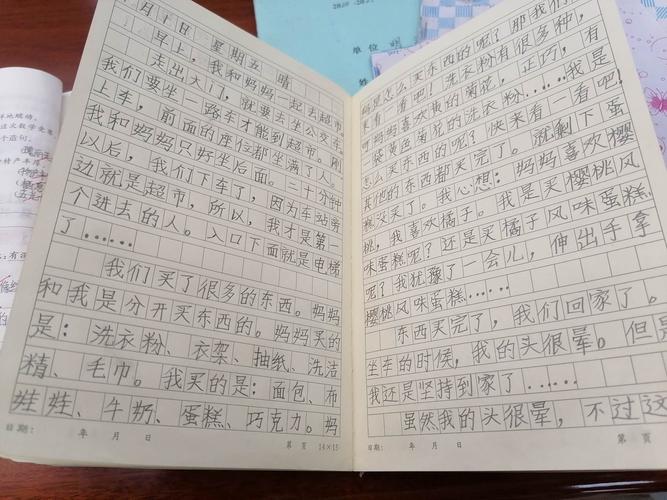 月 日 星期五 晴
早上，我和妈妈一起去超市。
走出大门，就要去坐公交车，
我们要坐一路车才能到超市。刚
上车，前面的座位都坐满了人。
我和妈妈只好坐后面。二十分钟
以后，我们下车了，因为车站旁
边就是超市，所以，我才是第一
个进去的人。入口下面就是电梯
了……
我们买了很多的东西。妈妈
和我是分开买东西的。妈妈买的
是：洗衣粉、衣架、抽纸、洗洁
精、毛巾。我买的是：面包、布
娃娃、牛奶、蛋糕、巧克力。妈
日期： 年 月 日 第 页 14×15
妈是怎么买东西的呢？那我们
看看吧！洗衣粉有很多种，
可妈妈喜欢黄的菊花，正巧，有
一袋黄色菊花的洗衣粉……我是
怎么买东西的呢？快来看一看吧！
其他的东西都买完了。就剩下蛋
糕没买了。我心想：妈妈喜欢樱
桃，我喜欢橘子。我是买樱桃风
味蛋糕呢？还是买橘子风味蛋糕
呢？我犹豫了一会儿，伸出手拿
樱桃风味蛋糕……
东西买完了，我们回家了。
坐车的时候，我的头很晕。但是
我还是坚持到家了……
虽然我的头很晕，不过这
日期： 年 月 日 第 页
单位